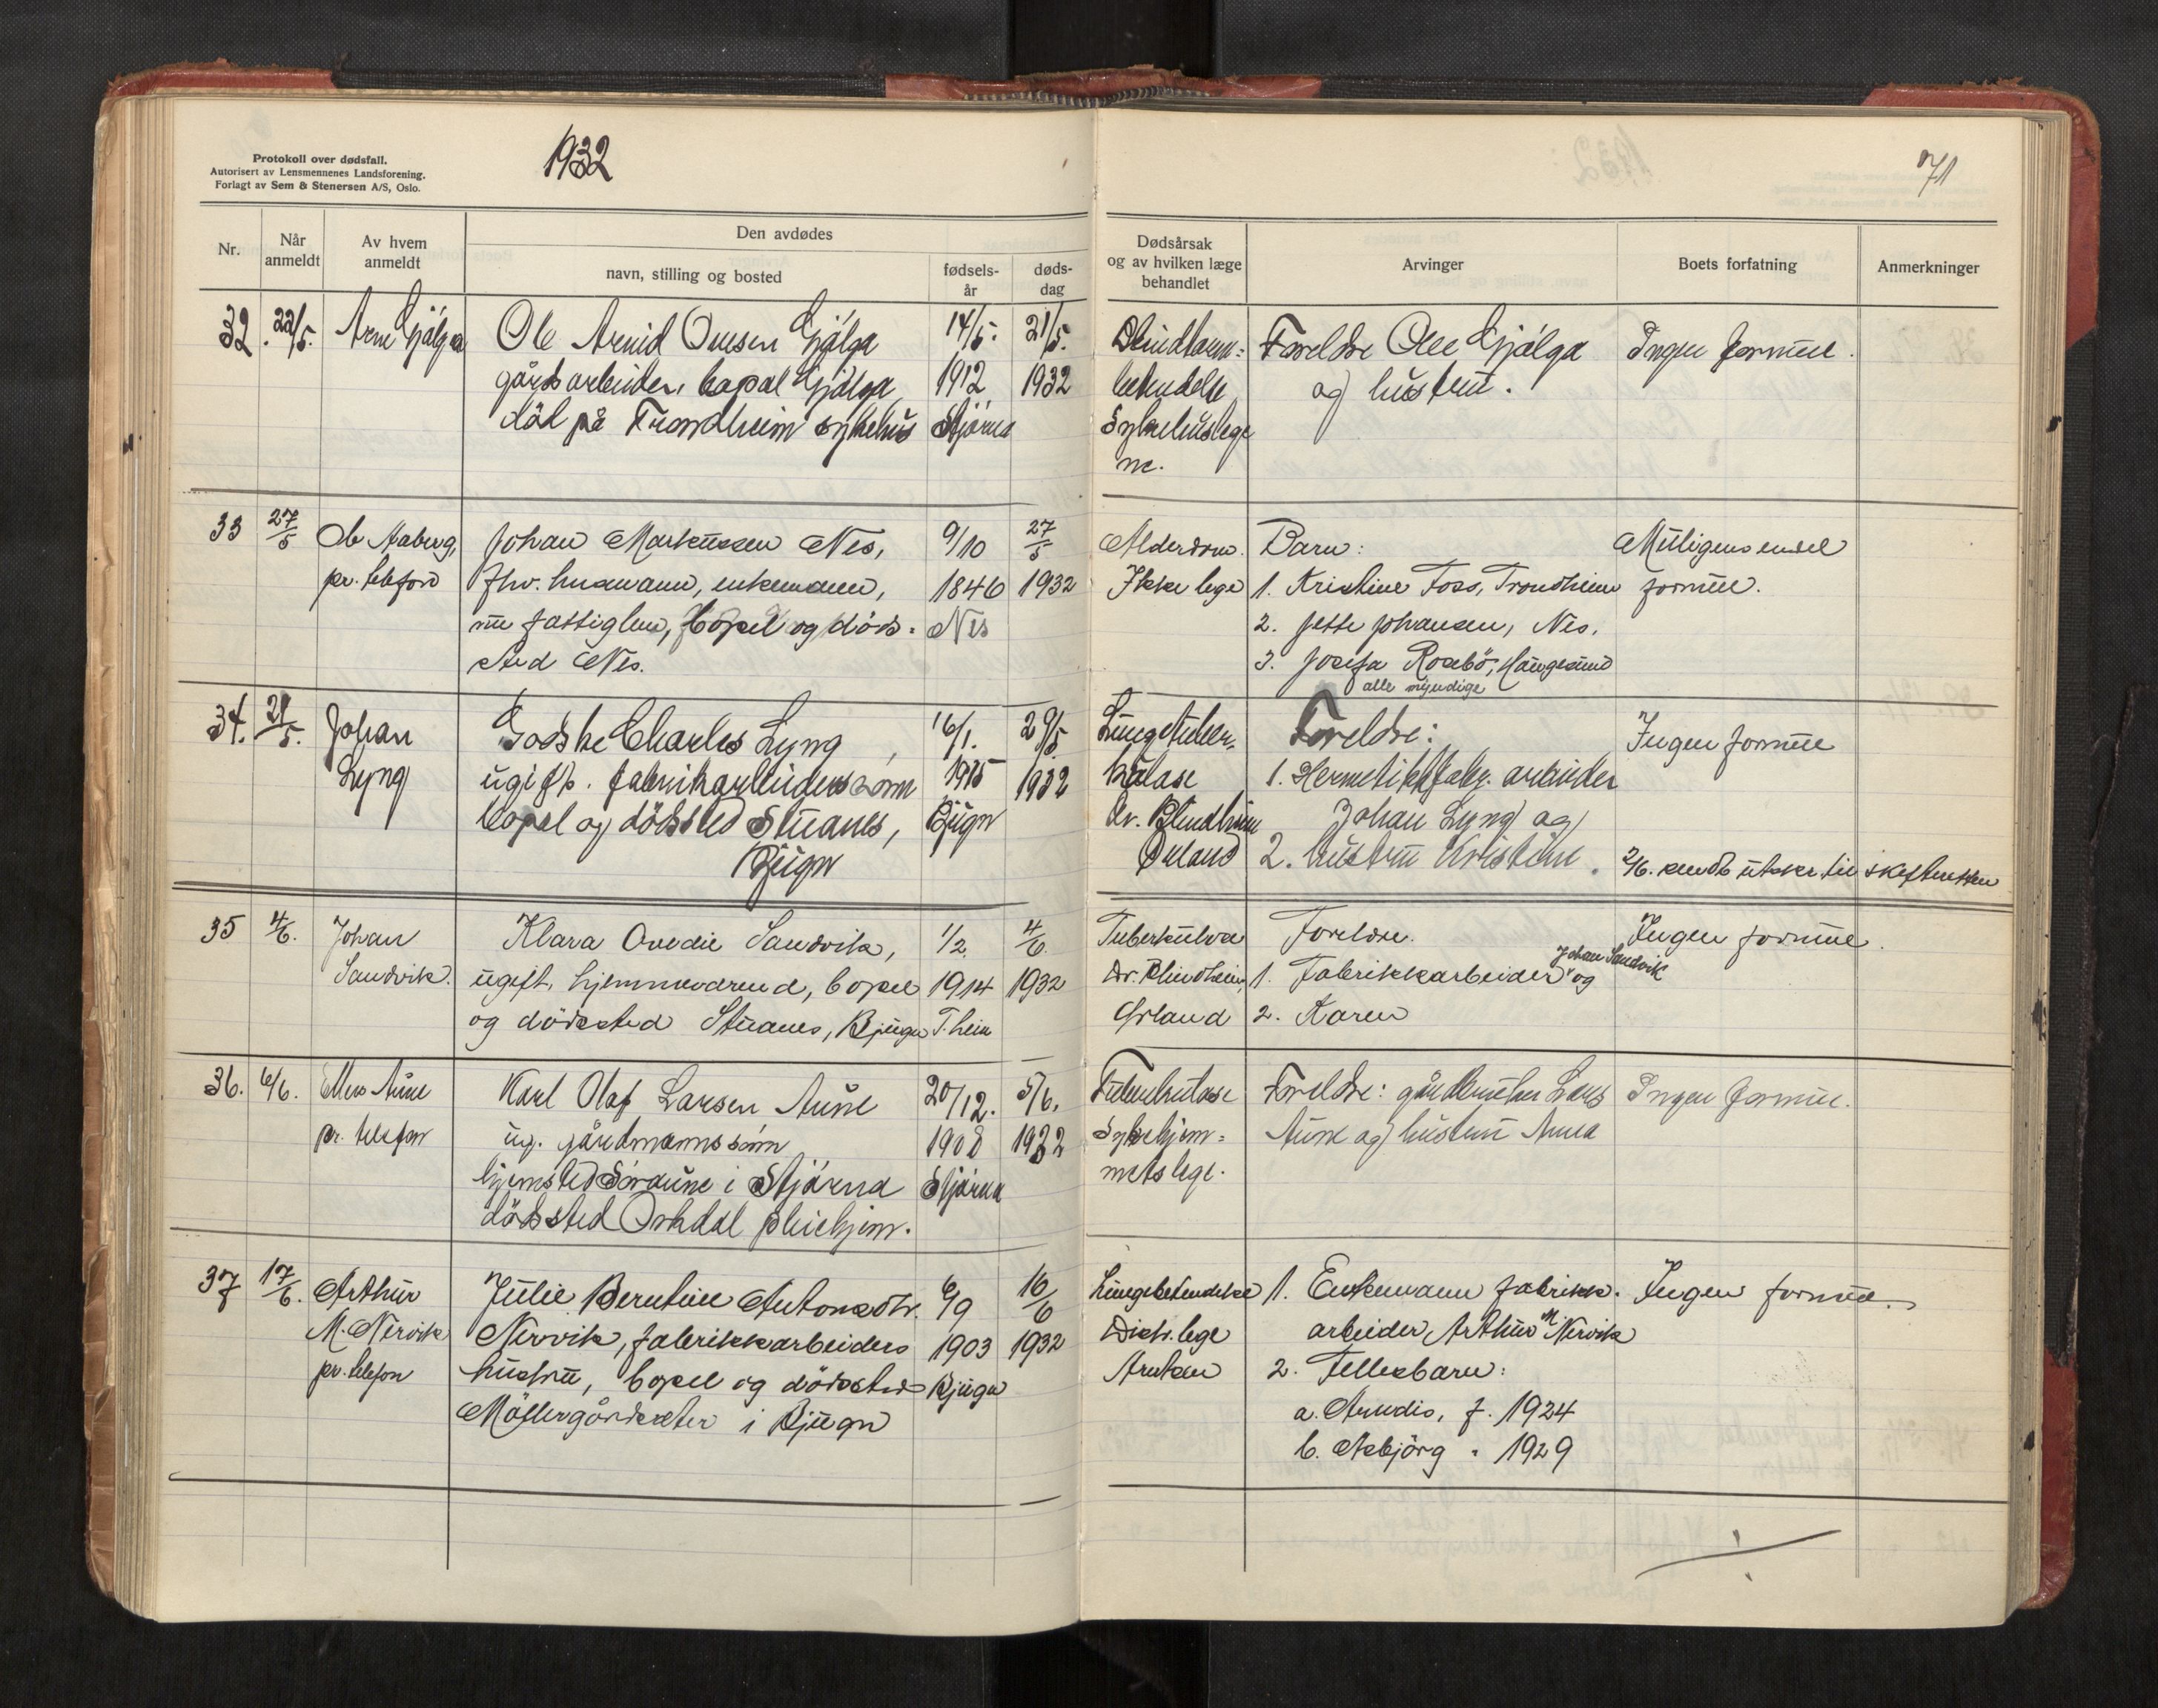 Protokoll over dødsfall.
Autorisert av Lensmennenes Landsforening.
Forlagt av Sem & Stenersen A/S, Oslo.
1932
71
Nr.
Når
anmeldt
Av hvem
anmeldt
Den avdødes
navn, stilling og bosted
fødsels-
år
døds-
dag
Dødsårsak
og av hvilken læge
behandlet
Arvinger
Boets forfatning
Anmerkninger
32. 22/5. Arne Gjölga
Ole Arnid Olsen Gjölga
gårdsarbeider, bopel Gjölga
död på Trondheim sykehus
14/5.
1912
Stjörna
21/5.
1932
Blindtarm=
betendelse
Sykehuslege
ne.
Foreldre Ole Gjölga
og hustru.
Ingen formue.
33 27/5 Ole Aaberg,
pr. telefon
Johan Markussen Nes,
fhv. husmann, enkemann,
nu fattiglem, bopel og döds=
sted Nes.
9/10
1846
Nes
27/5
1932
Alderdom.
Ikke lege
Barn:
1. Kristine Foss, Trondheim
2. Jette Johansen, Nes.
3. Josefa Rosebö, Haugesund
alle myndige
Muligens endel
formue.
34. 29/5. Johan
Lyng
Godske Charles Lyng,
ugift. fabrikarbeiderssönn
bopel og dödssted Stuanes,
Bjugn
16/1.
1915
Bjugn
29/5
1932
Lungetuber=
kulose
dr. Blindheim
Örland
Foreldre:
1. Hermetikkfabr. arbeider
Johan Lyng og
2. hustru Kristine.
Ingen formue
2/6. sendt utskr. til skifteretten
35 4/6. Johan
Sandvik.
Klara Ovedie Sandvik,
ugift, hjemmeværend, bopel
og dödssted Stuanes, Bjugn
1/2.
1914
T.heim
4/6.
1932
Tuberkulose
Dr. Blindheim,
Örland
Foreldre.
1. Fabrikkarbeider Johan Sandvik og
2. Karen
Ingen formue.
36. 6/6. Aune
pr. telefon
Karl Olaf Larsen Aune
ug. gårdmannssönn
hjemsted Söraune i Stjörna
dödssted Orkdal pleiehjem.
20/12.
1908
Stjörna
5/6.
1932
Tuberkulose
Sykehjem=
mets lege.
Foreldre: gårdbruker Lars
Aune og hustru Anna
Ingen formue.
37 17/6. Arthur
M. Nervik
pr. telefon
Julie Berntine Antonsdtr.
Nervik, fabrikkarbeiders
hustru, bopel og dödssted
Möllergårdseter i Bjugn
6/9
1903
Bjugn
16/6
1932
Lungebetendelse
Distr. lege
Arntsen
1. Enkemann fabrikk.
arbeider Arthur M. Nervik
2. Fellesbarn:
a. Arndis, f. 1924
b. Asbjörg " 1929
Ingen formue.